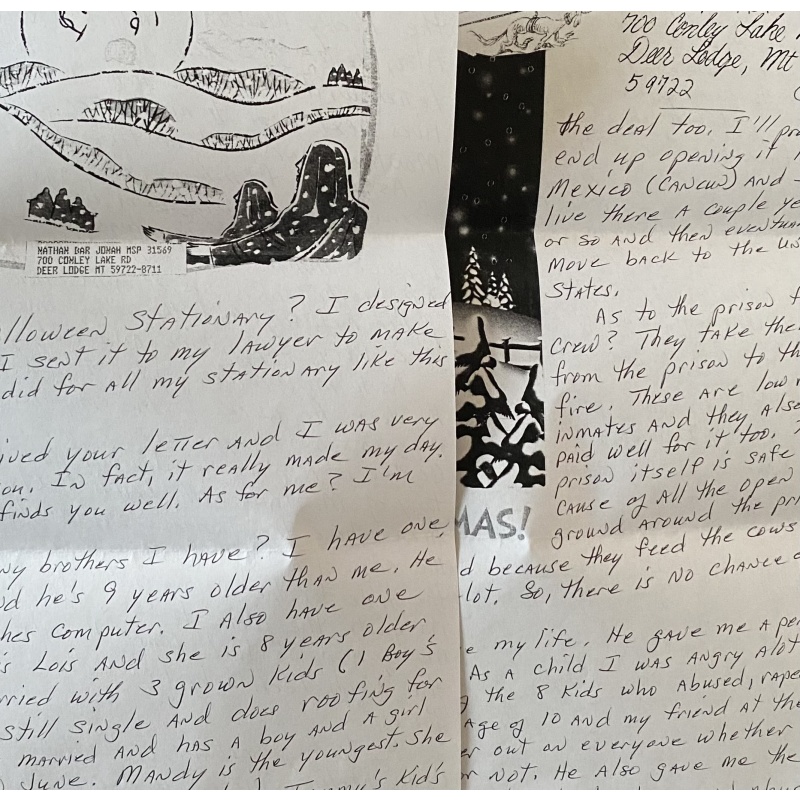 NATHAN BAR JONAH MSP 31569
700 CONLEY LAKE RD
DEER LODGE MT 59722-8711
lloween Stationary? I designed
I sent it to my lawyer to make
did for all my stationary like this
ived your letter and I was very
on. In fact, it really made my day.
finds you well. As for me? I'm
ny brothers I have? I have one,
d he's 9 years older than me. He
hes computer. I also have one
is Lois and she is 8 years older
rried with 3 grown kids (1 Boy's
still single and does roofing for
married and has a boy and a girl
June. Mandy is the youngest. She
Jimmy's kid's
MAS!
700 Conley Lake
Deer Lodge, Mt
59722
the deal too. I'll pr
end up opening it
Mexico (Cancun) and
live there a couple ye
or so and then eventua
move back to the Un
States.
As to the prison f
crew? They take the
from the prison to th
fire. These are low
inmates and they also
paid well for it too.
prison itself is safe
cause of all the open
ground around the pri
d because they feed the cows
lot. So, there is no chance
e my life. He gave me a pe
As a child I was angry alot
the 8 kids who abused, rape
age of 10 and my friend at the
er out on everyone whether
r not. He also gave me the